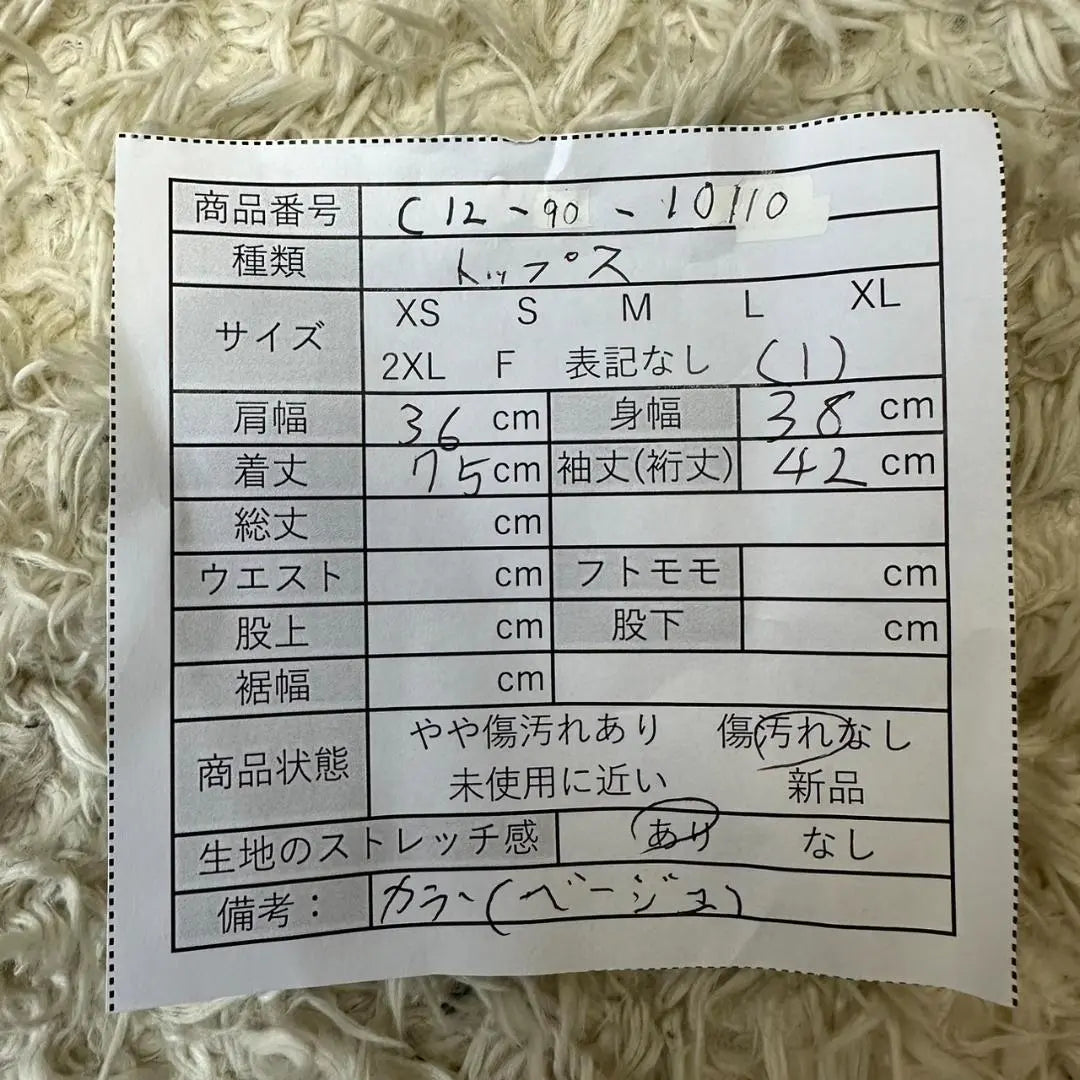 商品番号 C12-90-10110
種類 トップス
サイズ XS S M L XL
2XL F 表記なし (1)
肩幅 36 cm 身幅 38 cm
着丈 75 cm 袖丈(裄丈) 42 cm
総丈 cm
ウエスト cm フトモモ cm
股上 cm 股下 cm
裾幅 cm
商品状態 やや傷汚れあり 傷汚れなし
未使用に近い 新品
生地のストレッチ感 あり なし
備考： カラー(ベージュ)